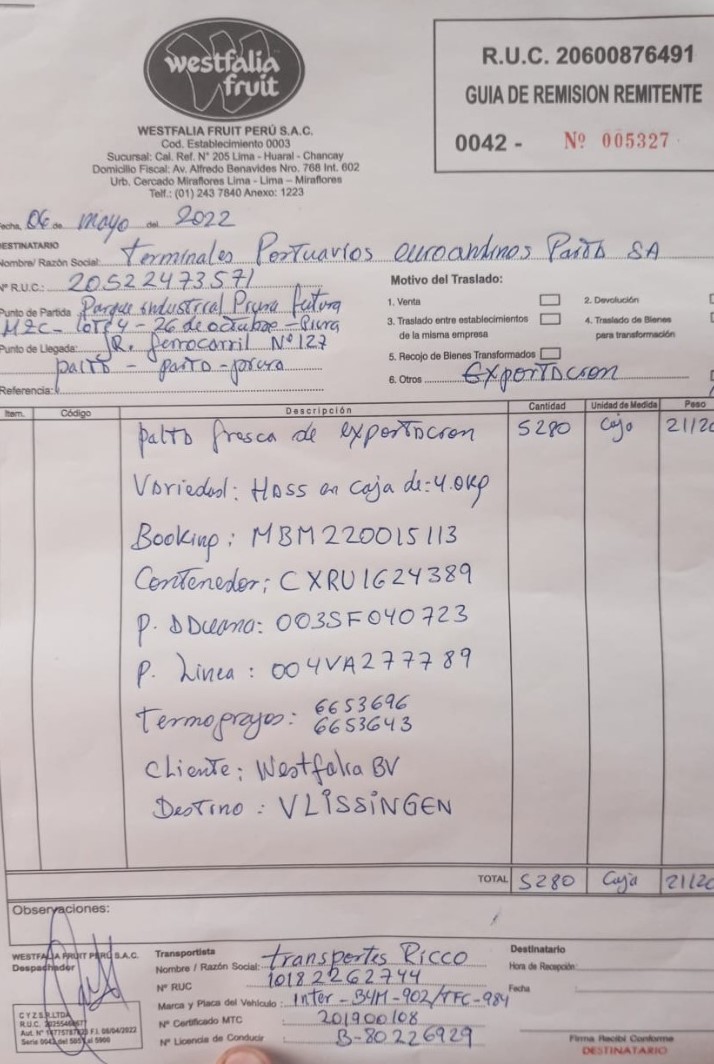 westfalia
fruit
WESTFALIA FRUIT PERÚ S.A.C.
Cod. Establecimiento 0003
Sucursal: Cal. Ref. N° 205 Lima - Huaral - Chancay
Domicilio Fiscal: Av. Alfredo Benavides Nro. 768 Int. 602
Urb. Cercado Miraflores Lima - Lima – Miraflores
Telf.: (01) 243 7840 Anexo: 1223
R.U.C. 20600876491
GUIA DE REMISION REMITENTE
0042 - Nº 005327
Fecha, 06 de mayo del 2022
DESTINATARIO
Nombre/ Razón Social: Terminales Portuarios euroandinos Paita SA
Nº R.U.C.: 20522473571
Punto de Partida Parque industrial Piura futura
MZC - lote 4 - 26 de octubre - Piura
Punto de Llegada: JR. ferrocarril Nº 127
paita - paita - piura
Referencia:
Motivo del Traslado:
1. Venta
2. Devolución
3. Traslado entre establecimientos
de la misma empresa
4. Traslado de Bienes
para transformación
5. Recojo de Bienes Transformados
6. Otros Exportacion
Item. Código Descripción Cantidad Unidad de Medida Peso
palta fresca de exportacion 5280 Caja 2112
Variedad: Hass en caja de: 4.0kg
Booking: MBM220015113
Contenedor: CXRU1624389
P. Aduana: 003SF040723
P. Linea: 004VA277789
Termograjos: 6653696
6653643
Cliente: Westfalia BV
Destino: VLISSINGEN
TOTAL 5280 Caja 2112
Observaciones:
WESTFALIA FRUIT PERÚ S.A.C.
Despachador
Transportista
Nombre / Razón Social: transportes Ricco
Nº RUC 10182262744
Marca y Placa del Vehículo: Inter - B4M-902/TFC-984
Nº Certificado MTC 201900108
Nº Licencia de Conducir B-80226929
Destinatario
Hora de Recepción:
Fecha
Firma Recibi Conforme
DESTINATARIO
CYZ S.R.LTDA
F.I. 08/04/2022